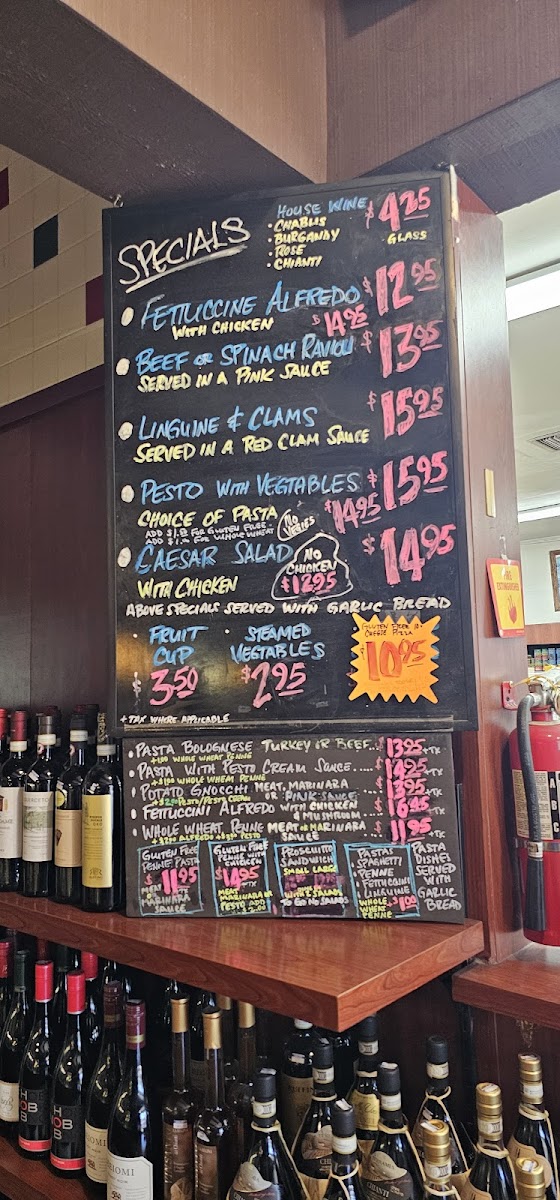 SPECIALS
HOUSE WINE $4.25
• CHABLIS GLASS
• BURGANDY
• ROSE
• CHIANTI
FETTUCCINE ALFREDO $12.95
WITH CHICKEN $14.95
BEEF OR SPINACH RAVIOLI $13.95
SERVED IN A PINK SAUCE
LINGUINE & CLAMS $15.95
SERVED IN A RED CLAM SAUCE
PESTO WITH VEGTABLES $15.95
CHOICE OF PASTA NO VEGIES $14.95
ADD FOR GLUTEN FREE
ADD FOR WHOLE WHEAT
CAESAR SALAD $14.95
WITH CHICKEN NO CHICKEN $12.95
ABOVE SPECIALS SERVED WITH GARLIC BREAD
• FRUIT CUP $3.50
• STEAMED VEGTABLES $2.95
GLUTEN FREE
CHEESE PIZZA
10.95
+ TAX WHERE APPLICABLE
• PASTA BOLOGNESE TURKEY OR BEEF... $13.95 +TX
+1.00 WHOLE WHEAT PENNE
• PASTA WITH PESTO CREAM SAUCE..... $14.25 +TX
+$1.00 WHOLE WHEAT PENNE
• POTATO GNOCCHI MEAT, MARINARA OR PINK SAUCE $13.95 +TX
PESTO/PESTO CREAM
• FETTUCCINI ALFREDO WITH CHICKEN & MUSHROOM $16.45 +TX
• WHOLE WHEAT PENNE MEAT OR MARINARA SAUCE $11.95 +TX
ALFREDO PESTO
GLUTEN FREE
PENNE PASTA
$11.95
MEAT OR
MARINARA
SAUCE
GLUTEN FREE
PENNE WITH
CHICKEN
$14.95
MEAT
MARINARA OR
PESTO ADD
$2.00
PROSCIUTTO
SANDWICH
SMALL LARGE
WITH 2 SALADS
TO GO NO SALADS
PASTAS
SPAGHETTI
• PENNE
• FETTUCCINI
• LINGUINE
WHOLE
WHEAT
PENNE $1.00
PASTA
DISHES
SERVED
WITH
GARLIC
BREAD
HOB
HOB
CHIANTI